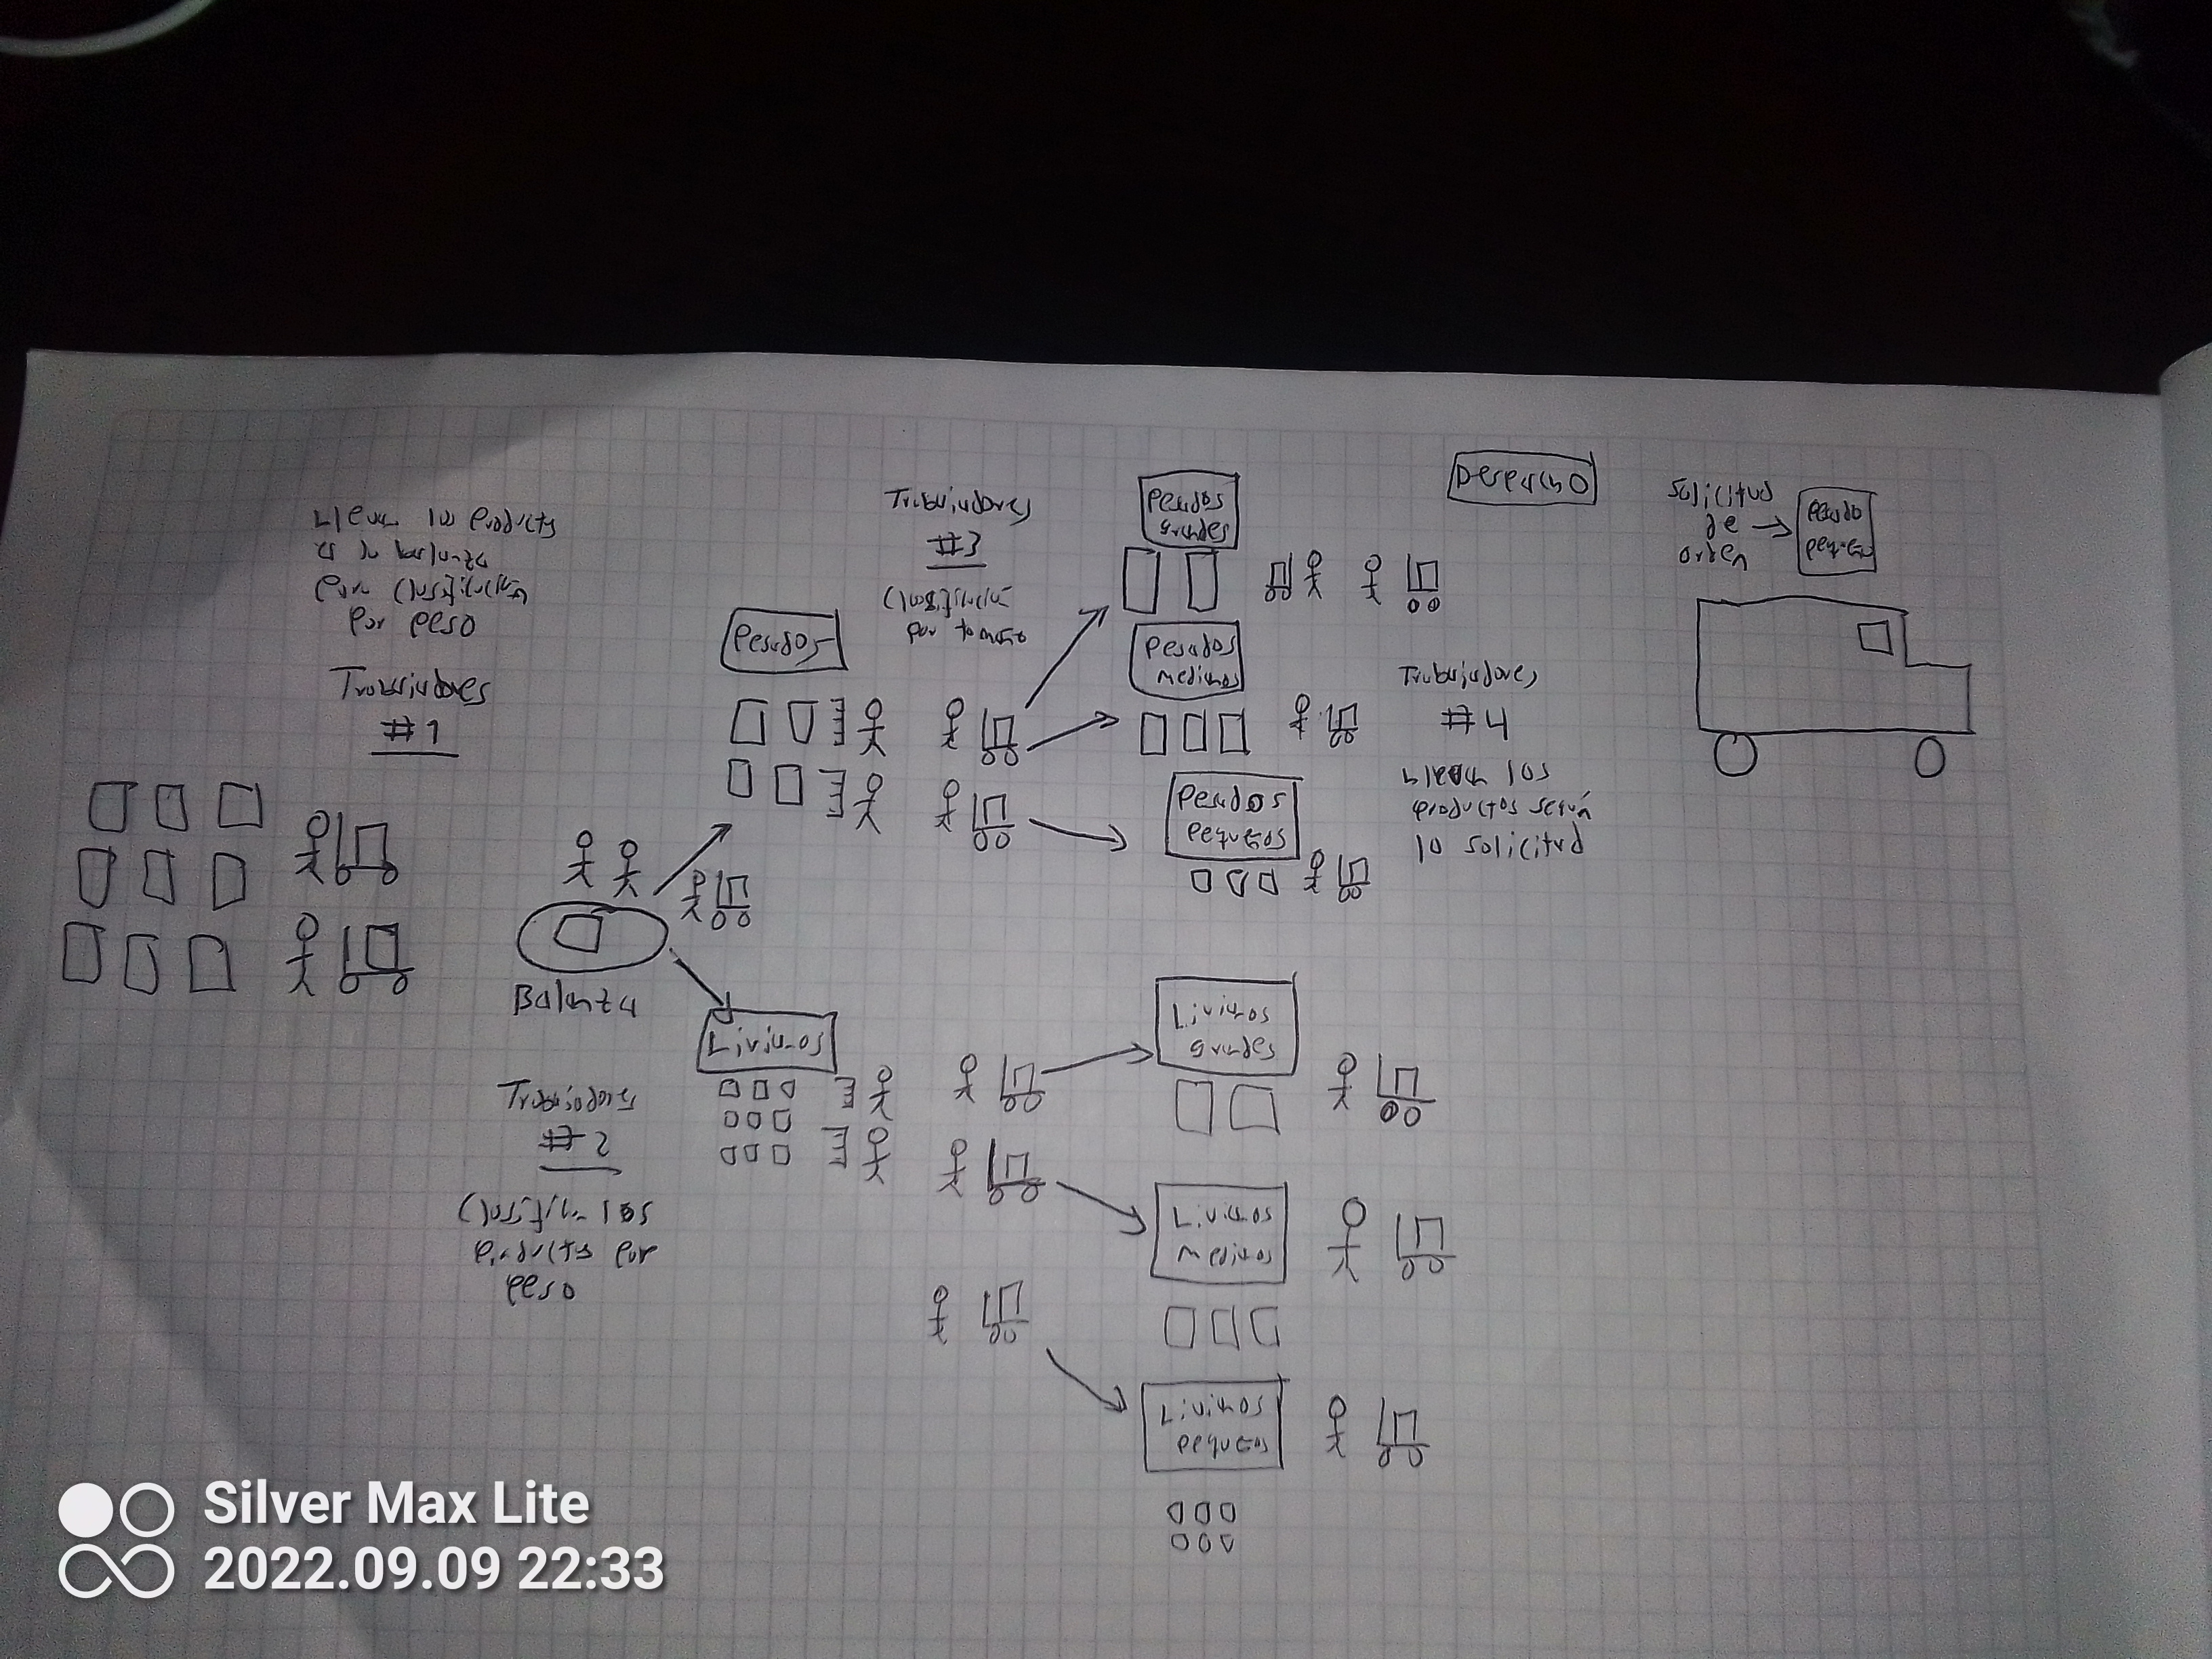 Llevan los products
a la balanza
para clasificación
por peso
Trabajadores
#1
Balanza
Trabajadores
#2
Clasifican los
productos por
peso
Pesados
Livianos
Trabajadores
#3
Clasificación
por tamaño
Pesados
grandes
Pesados
medianos
Pesados
pequeños
Livianos
grandes
Livianos
medianos
Livianos
pequeños
Despacho
Trabajadores
#4
llevan los
productos según
la solicitud
Solicitud
de
orden
Pesado
pequeño
Silver Max Lite
2022.09.09 22:33